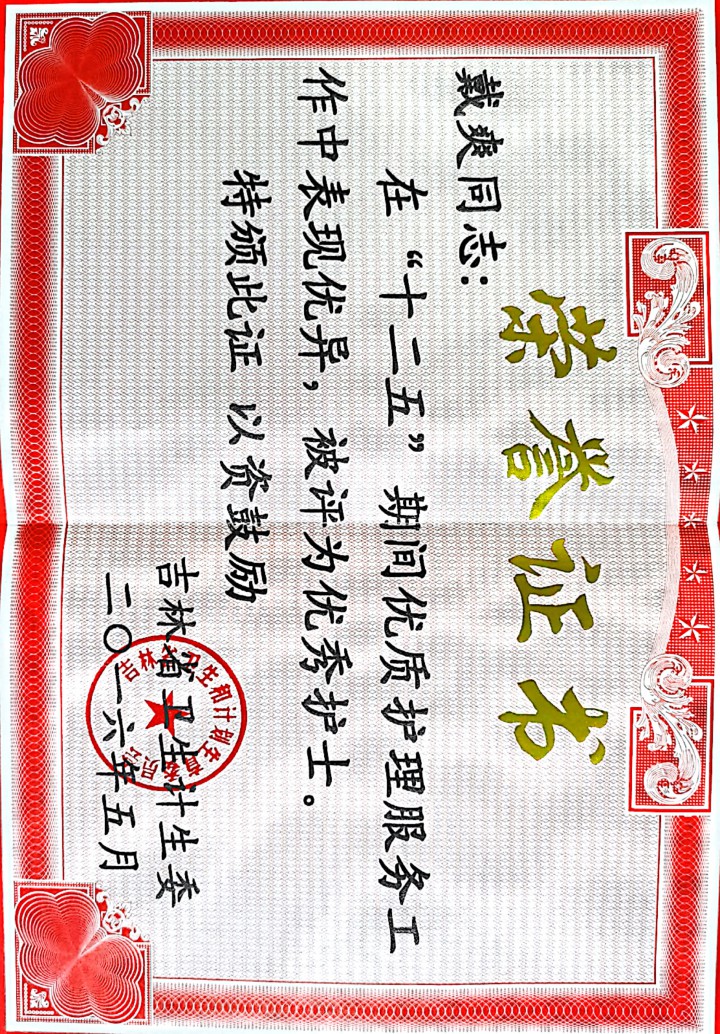 荣誉证书
戴爽同志：
在“十二五”期间优质护理服务工
作中表现优异，被评为优秀护士。
特颁此证 以资鼓励
吉林省卫生计生委
二〇一六年五月
吉林省卫生和计划生育委员会